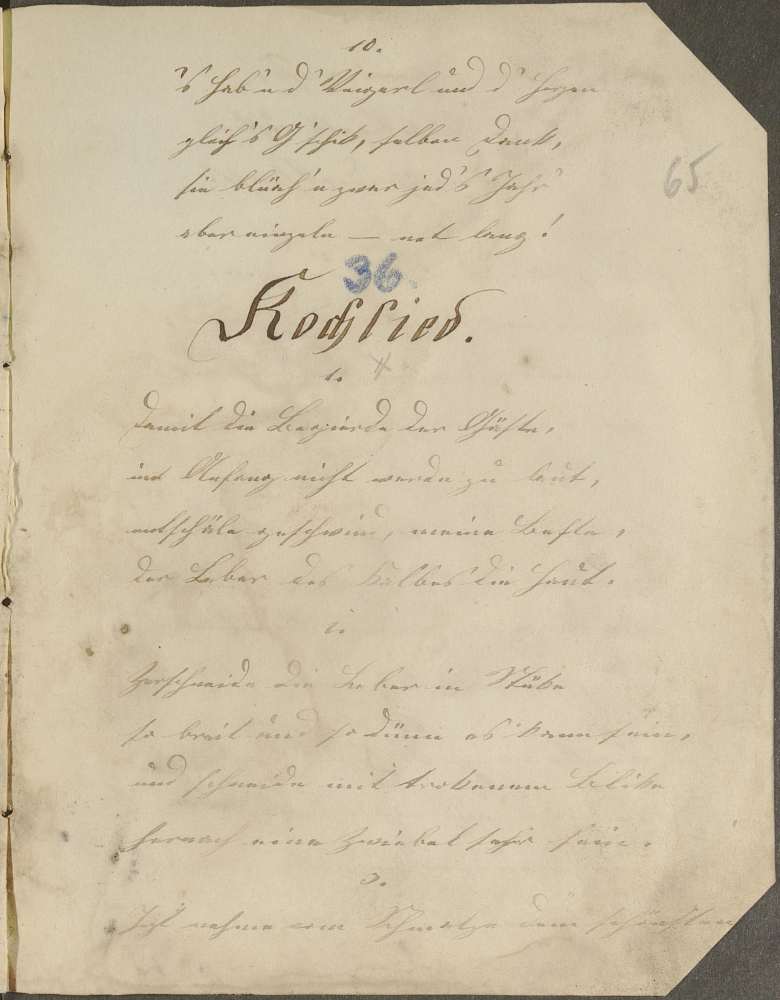 10.
's hab'n d' Veigerl und d' Herzen
gleich 's G'schik, selben Dank,
sie blüeh'n zwar jed's Jahr
aber einzeln — net lang!
65
36.
Kochlied.
1.
Damit die Begierde der Gäste,
im Anfang nicht werde zu laut,
entschäle geschwind, meine Beste,
der Leber des Kalbes die Haut.
2.
Zerschneide die Leber in Stüke
so breit und so dünn es kann sein,
und schneide mit trokenem Blike
hernach eine Zwiebel sehr fein.
3.
Jezt nehme vom Schmalze dem schönsten